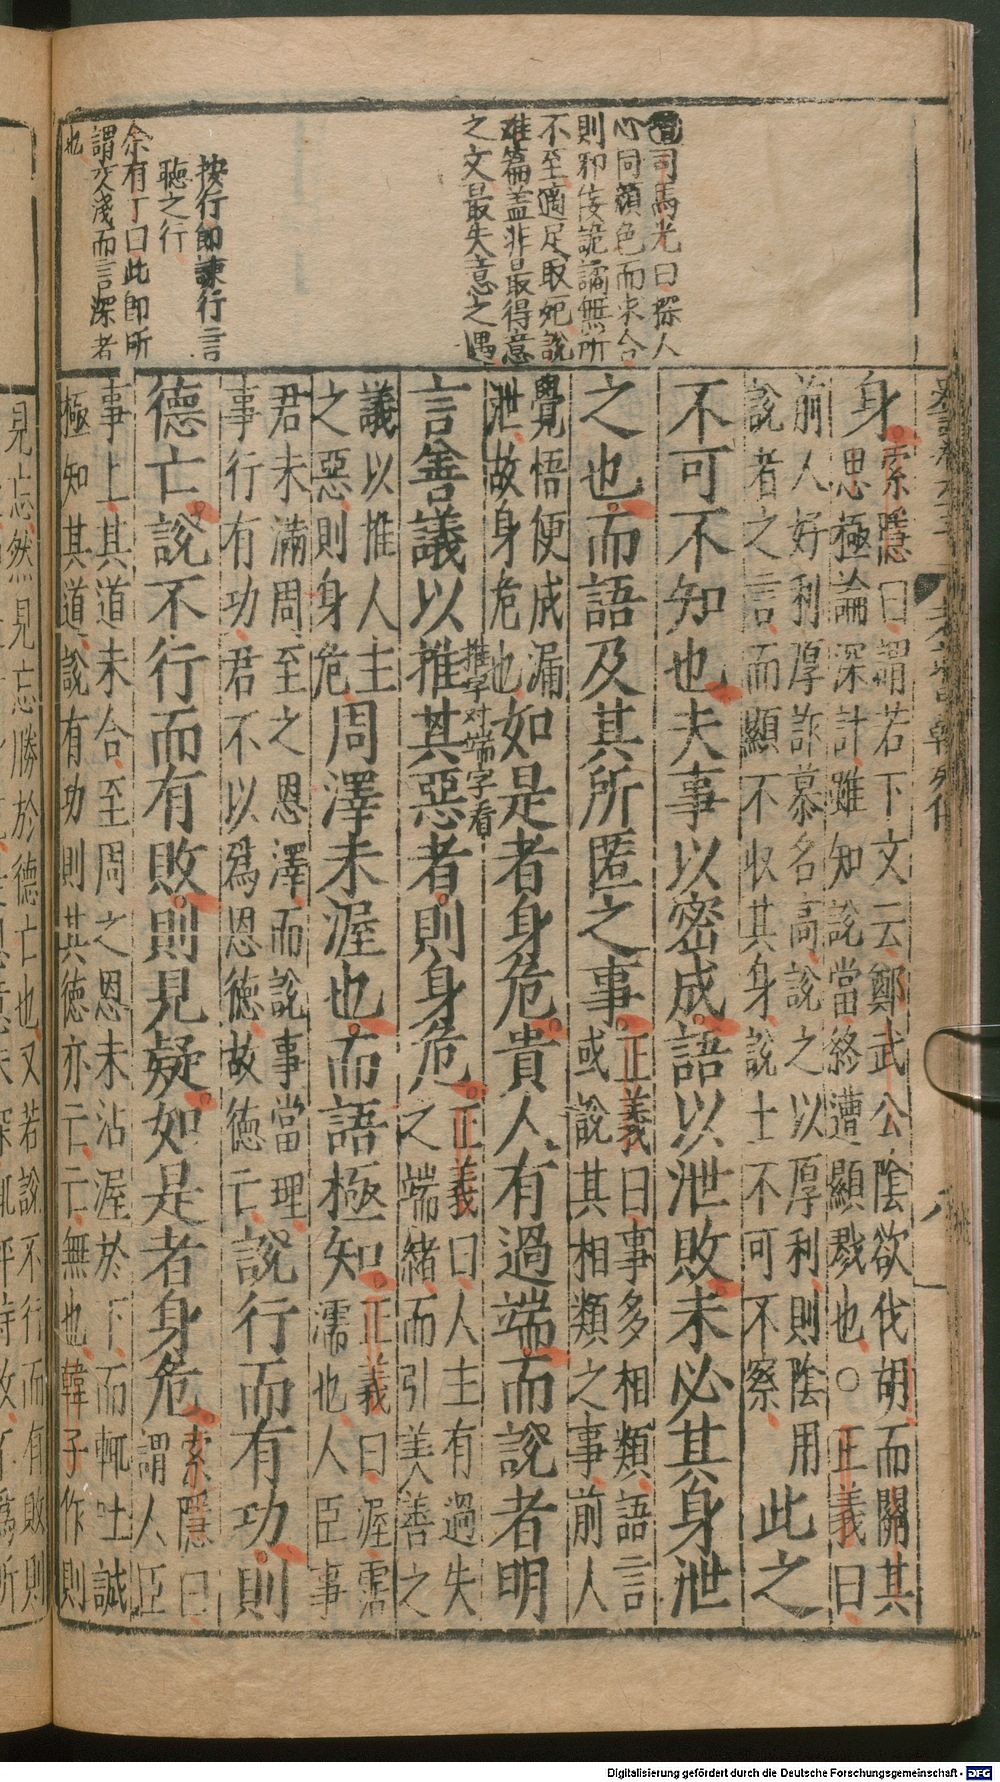 司馬光曰揬人
心同顏色而未合
則邪佞詭譎無所
不至適足取死說
難篇蓋非最得意
之文最失意之遇
按行即諫行言
聽之行
余有丁曰此即所
謂交淺而言深者
也
身索隱曰謂若下文云鄭武公陰欲伐胡而關其
思極論深計雖知說當終遭顯戮也○正義曰
前人好利厚詐慕名高說之以厚利則陰用
說者之言而顯不收其身說士不可不察 此之
不可不知也夫事以密成語以泄敗未必其身泄
之也而語及其所匿之事正義曰事多相類語言
或說其相類之事前人
覺悟便成漏
泄故身危也如是者身危貴人有過端而說者明
推字对端字看
言善議以推其惡者則身危正義曰人主有過失
之端緒而引美善之
議以推人主
之惡則身危周澤未渥也而語極知正義曰渥霑
濡也人臣事
君未滿周至之恩澤而說事當理
事行有功君不以爲恩德故德亡說行而有功則
德亡說不行而有敗則見疑如是者身危索隱曰
謂人臣
事上其道未合至周之恩未沾渥於下而輒吐誠
極知其道說有功則其德亦亡亡無也韓子作則
見忘然見忘勝於德亡也又若說不行而有敗則
Digitalisierung gefördert durch die Deutsche Forschungsgemeinschaft - DFG